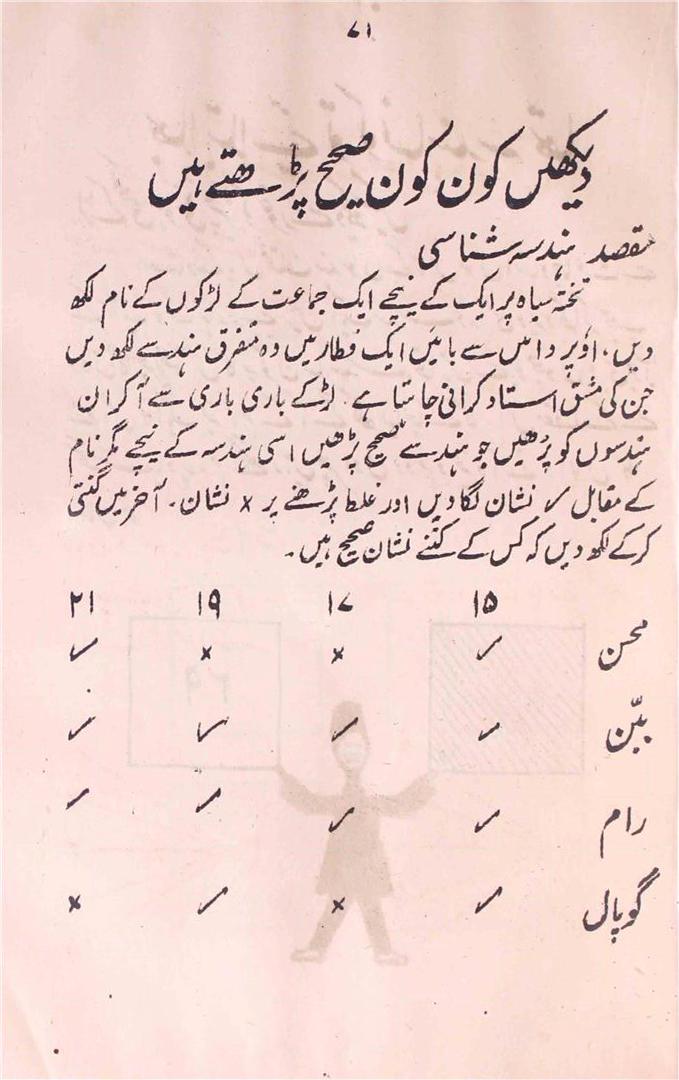 ۷۱
دیکھیں کون کون صحیح پڑھتے ہیں
مقصد ہندسہ شناسی
تختہ سیاہ پر ایک کے نیچے ایک جماعت کے لڑکوں کے نام لکھ
دیں، اوپر دائیں سے بائیں ایک قطار میں وہ متفرق ہندسے لکھ دیں
جن کی مشق استاد کرانی چاہتا ہے۔ لڑکے باری باری سے آکر ان
ہندسوں کو پڑھیں جو ہندسے صحیح پڑھیں اسی ہندسہ کے نیچے مگر نام
کے مقابل ✓ نشان لگادیں اور غلط پڑھنے پر × نشان۔ آخر میں گنتی
کرکے لکھ دیں کہ کس کے کتنے نشان صحیح ہیں۔
۱۵ ۱۷ ۱۹ ۲۱
محسن ✓ × × ✓
ببّن ✓ ✓ ✓ ✓
رام ✓ ✓ ✓ ✓
گوپال ✓ × ✓ ×